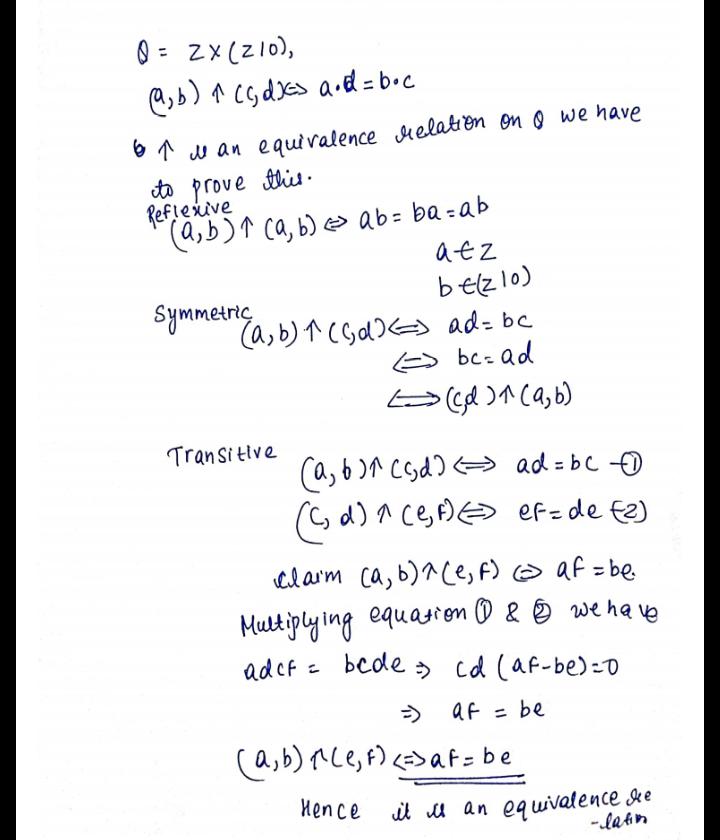 Q = Z X (Z10),
(a,b) ↑ (c,d) ⇔ a•d = b•c
↑ is an equivalence relation on Q we have
to prove this.
Reflexive
(a,b) ↑ (a,b) ⇔ ab = ba = ab
a ∈ z
b ∈ (z10)
Symmetric
(a,b) ↑ (c,d) ⇔ ad = bc
⇔ bc = ad
⇔ (c,d) ↑ (a,b)
Transitive
(a,b) ↑ (c,d) ⇔ ad = bc -①
(c,d) ↑ (e,f) ⇔ ef = de -(2)
claim (a,b) ↑ (e,f) ⇔ af = be
Multiplying equation ① & ② we have
adcf = bcde ⇒ cd (af-be)=0
⇒ af = be
(a,b) ↑ (e,f) ⇔ af = be
Hence it is an equivalence re
-lation